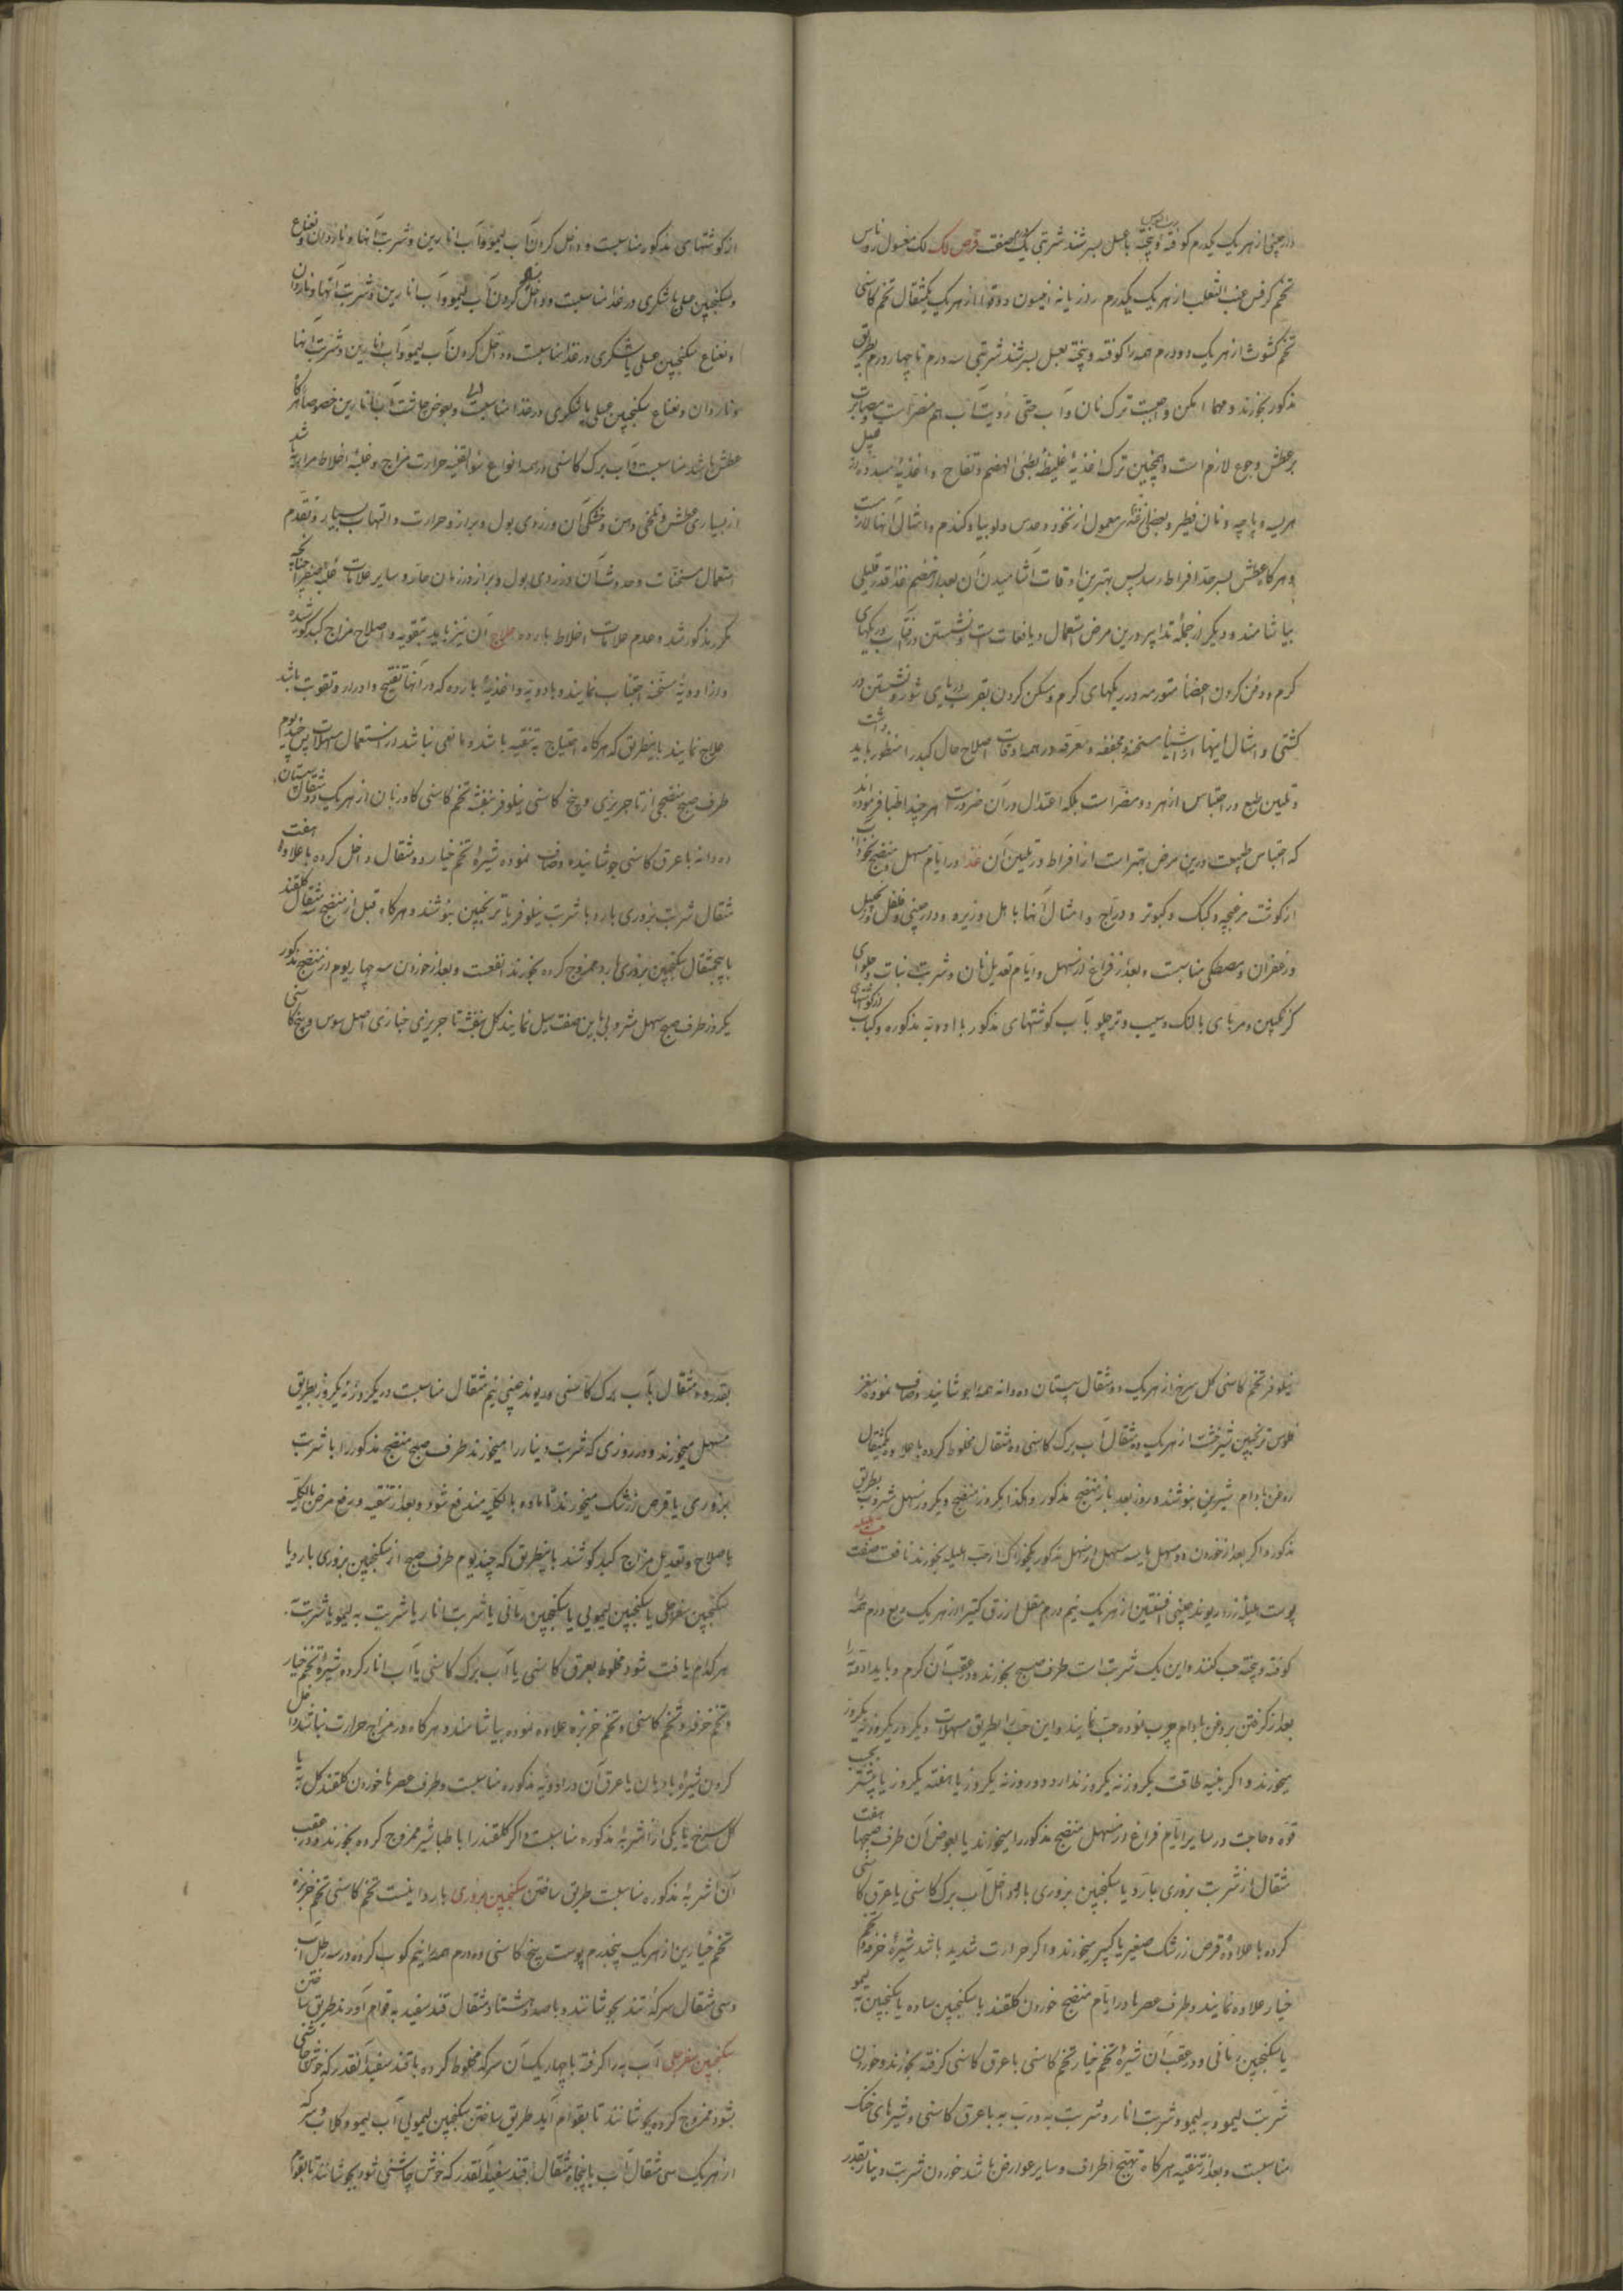 دارچینی از هر یک یکدرم کوفته و بیخته با عسل بسرشند شربتی یک صفت قرص لک لک مغسول روناس
تخم کرفس عنب الثعلب از هر یک یکدرم رازیانه انیسون از هر یک یکمثقال تخم کاسنی
تخم کشوث از هر یک دو درم همه را کوفته و بیخته بعسل بسرشند شربتی سه درم تا چهار درم بطریق
مذکور بخورند و مهما امکن واجبست ترک نان و آب حتی رؤیت آب هم مضر است و مصابرت
بر عطش و جوع لازم است و همچنین ترک اغذیهٔ غلیظهٔ بطئی الهضم و نفاخ و اغذیهٔ مسدده از قبیل
هریسه و پاچه و نان فطیر و بعضی معمول از نخود و عدس و لوبیا و کندم و امثال آنها لازمست
و هرکاه عطش بسر حد افراط رسد پس بهترین اوقات آشامیدن آن بعد از هضم غذا قدر قلیلی
بیاشامند و دیکر از جملهٔ تدابیر درین مرض استعمال ریاضات است و نشستن در آفتاب و ریکهای
کرم و دفن کردن اعضا متورمه در ریکهای کرم و مسکن کردن بقرب دریای شور و نشستن در
کشتی و امثال اینها از اشیا مسخنه و مجففه و معرقه در همه اوقات اصلاح حال کبد را منظور باید داشت
و تلیین طبع و احتباس از هر دو مضر است بلکه اعتدال در آن ضرورست هر چند اطبا فرموده اند
که احتباس طبیعت درین مرض بهتر است از افراط در تلیین آن غذا در ایام مسهل و منضج نخودآب
از کوشت مرغبچه و کبک و کبوتر و دراج و امثال آنها با هل و زیره و دارچینی و فلفل و زنجبیل
و زعفران و مصطکی مناسبست و بعد از فراغ از مسهل و ایام تعدیل نان و شربت نبات و حلوای
کزنکبین و مربای بالنک و سیب و ترچلو با آب کوشتهای مذکور با ادویهٔ مذکوره و کباب از کوشتهای
از کوشتهای مذکور مناسبست و داخل کردن آب لیمو و آب انارین و شربت آنها و ناردان و نعناع
و سکنجبین عسلی یا شکری در غذا مناسبست و داخل کردن آب لیمو و آب انارین و شربت آنها و ناردان
و نعناع سکنجبین عسلی یا شکری در غذا مناسبست و داخل کردن آب لیمو و آب انارین و شربت آنها
و ناردان و نعناع سکنجبین عسلی یا شکری در غذا مناسبست و بعوض چاشت آب انارین خصوصا هرکاه
عطش باشد مناسبست و آب برک کاسنی در همه انواع سوء القنیه حرارت مزاج و غلبهٔ اخلاط مراریه باشد
از بسیاری عطش و تلخی دهن و خشکی آن و زردی بول و براز و حرارت و التهاب بسیار و تقدم
استعمال مسخنات و حدوث آن در زردی بول و براز و زمان حار و سایر علامات غلبهٔ صفرا چنانچه
مکرر مذکور شد و عدم علامات اخلاط بارده علاج آن نیز باید بتقویه و اصلاح مزاج کبد کوشیده
و از ادویهٔ مسخنه اجتناب نمایند و بادویه و اغذیهٔ بارده که در آنها تفتیح و ادرار و تقویت باشد
علاج نمایند باینطریق که هرکاه احتیاج به تنقیه باشد و مانعی نباشد از استعمال مسهلات پس چند یوم
طرف صبح منضجی از تاجریزی و بیخ کاسنی نیلوفر بنفشه تخم کاسنی کاوزبان از هر یک دو مثقال سپستان
ده دانه با عرق کاسنی جوشانیده و صاف نموده شیرهٔ تخم خیار دو مثقال داخل کرده با علاوهٔ هفت
مثقال شربت بزوری بارد یا شربت نیلوفر یا ترنجبین بنوشند و هرکاه قبل از منضج سه مثقال کلقند
با پنجمثقال سکنجبین بزوری بارد ممزوج کرده بخورند انفعست و بعد از خوردن سه چهار یوم از منضج مذکور
یکروز طرف صبح مسهل مشروبی باین صفت میل نمایند کل بنفشه تاجریزی خبازی اصل سوس و بیخ کاسنی
نیلوفر تخم کاسنی کل سرخ از هر یک دو مثقال سپستان ده دانه همه را جوشانیده و صاف نموده مغز
فلوس ترنجبین شیرخشت از هر یک ده مثقال آب برک کاسنی ده مثقال مخلوط کرده با علاوهٔ یکمثقال
روغن بادام شیرین بنوشند و روز بعد باز منضج مذکور و هکذا یکروز منضج و یکروز مسهل مشروب بطریق
مذکور و اکر بعد از خوردن دو مسهل یا سه مسهل از مسهل مذکور یکخوراک از حب اهلیله بخورند نافعست صفت حب هلیله
پوست هلیله زرد ریوند چینی افسنتین از هر یک نیم درم مقل ازرق کتیرا از هر یک ربع درم همه را
کوفته و بیخته حب کنند و این یک شربت است طرف صبح بخورند و در عقب آن کرم و باید ادویه را
بعد از کرفتن بروغن بادام چرب نموده حب نمایند و این حب را بطریق مسهلات دیکر در یکروز نه یکروز
میخورند و اکر بنیه طاقت یکروز نه یکروز ندارد دو روز نه یکروز یا هفته یکروز یا بیشتر بحسب
قوه و حاجت در سایر ایام فراغ از مسهل منضج مذکور را میخورند یا بعوض آن طرف صبحها هفت
مثقال از شربت بزوری بارد یا سکنجبین بزوری بارد داخل آب برک کاسنی یا عرق کاسنی
کرده با علاوهٔ قرص زرشک صغیر یا کبیر میخورند و اکر حرارت شدید باشد شیرهٔ خرفه و تخم
خیار علاوه نمایند و طرف عصرها در ایام منضج خوردن کلقند با سکنجبین ساده یا سکنجبین به لیمو
یا سکنجبین رمانی و در عقب آن شیرهٔ تخم خیار تخم کاسنی با عرق کاسنی کرفته بخورند و خوردن
شربت لیمو و به لیمو و شربت انار و شربت به و رب به با عرق کاسنی و شیرهای خنک
مناسبست و بعد از تنقیه هرکاه تهبج اطراف و سایر عوارض باشد خوردن شربت دینار بقدر
بقدر ده مثقال با آب برک کاسنی و ریوند چینی نیم مثقال مناسبست در یکروز نه یکروز بطریق
مسهل میخورند و در روزی که شربت دینار را میخورند طرف صبح منضج مذکور را با شربت
بزوری یا قرص زرشک میخورند تا ماده بالکلیه مندفع شود و بعد از تنقیه و رفع مرض بالکلیه
باصلاح و تعدیل مزاج کبد کوشند باینطریق که چند یوم طرف صبح از سکنجبین بزوری بارد یا
سکنجبین سفرجلی یا سکنجبین لیمویی یا سکنجبین رمانی یا شربت انار یا شربت به لیمو یا شربت به
هر کدام یافت شود مخلوط بعرق کاسنی یا آب برک کاسنی یا آب انار کرده شیرهٔ تخم خیار
و تخم خرفه و تخم کاسنی و تخم خربزه علاوه نموده بیاشامند و هرکاه در مزاج حرارت نباشد داخل
کردن شیرهٔ بادیان یا عرق آن در ادویهٔ مذکوره مناسبست و طرف عصرها خوردن کلقند کل به یا
کل سرخ با یکی از اشربهٔ مذکوره مناسبست و اکر کلقند را با طباشیر ممزوج کرده بخورند و در عقب
آن اشربهٔ مذکوره مناسبست طریق ساختن سکنجبین بزوری بارد اینست تخم کاسنی تخم خربزه
تخم خیارین از هر یک پنجدرم پوست بیخ کاسنی ده درم همه را نیم کوب کرده در سه رطل آب
و سی مثقال سرکهٔ تند بجوشانند و با صد و هشتاد مثقال قند سفید به قوام آورند طریق ساختن
سکنجبین سفرجلی آب به را کرفته با چهار یک آن سرکه مخلوط کرده با قند سفید آنقدر که خوش چاشنی
بشود ممزوج کرده بجوشانند تا بقوام آید طریق ساختن سکنجبین لیمویی آب لیمو و کلاب و سرکه
از هر یک سی مثقال آب با پنجاه مثقال با قند سفید آنقدر که خوش چاشنی شود بجوشانند تا بقوام